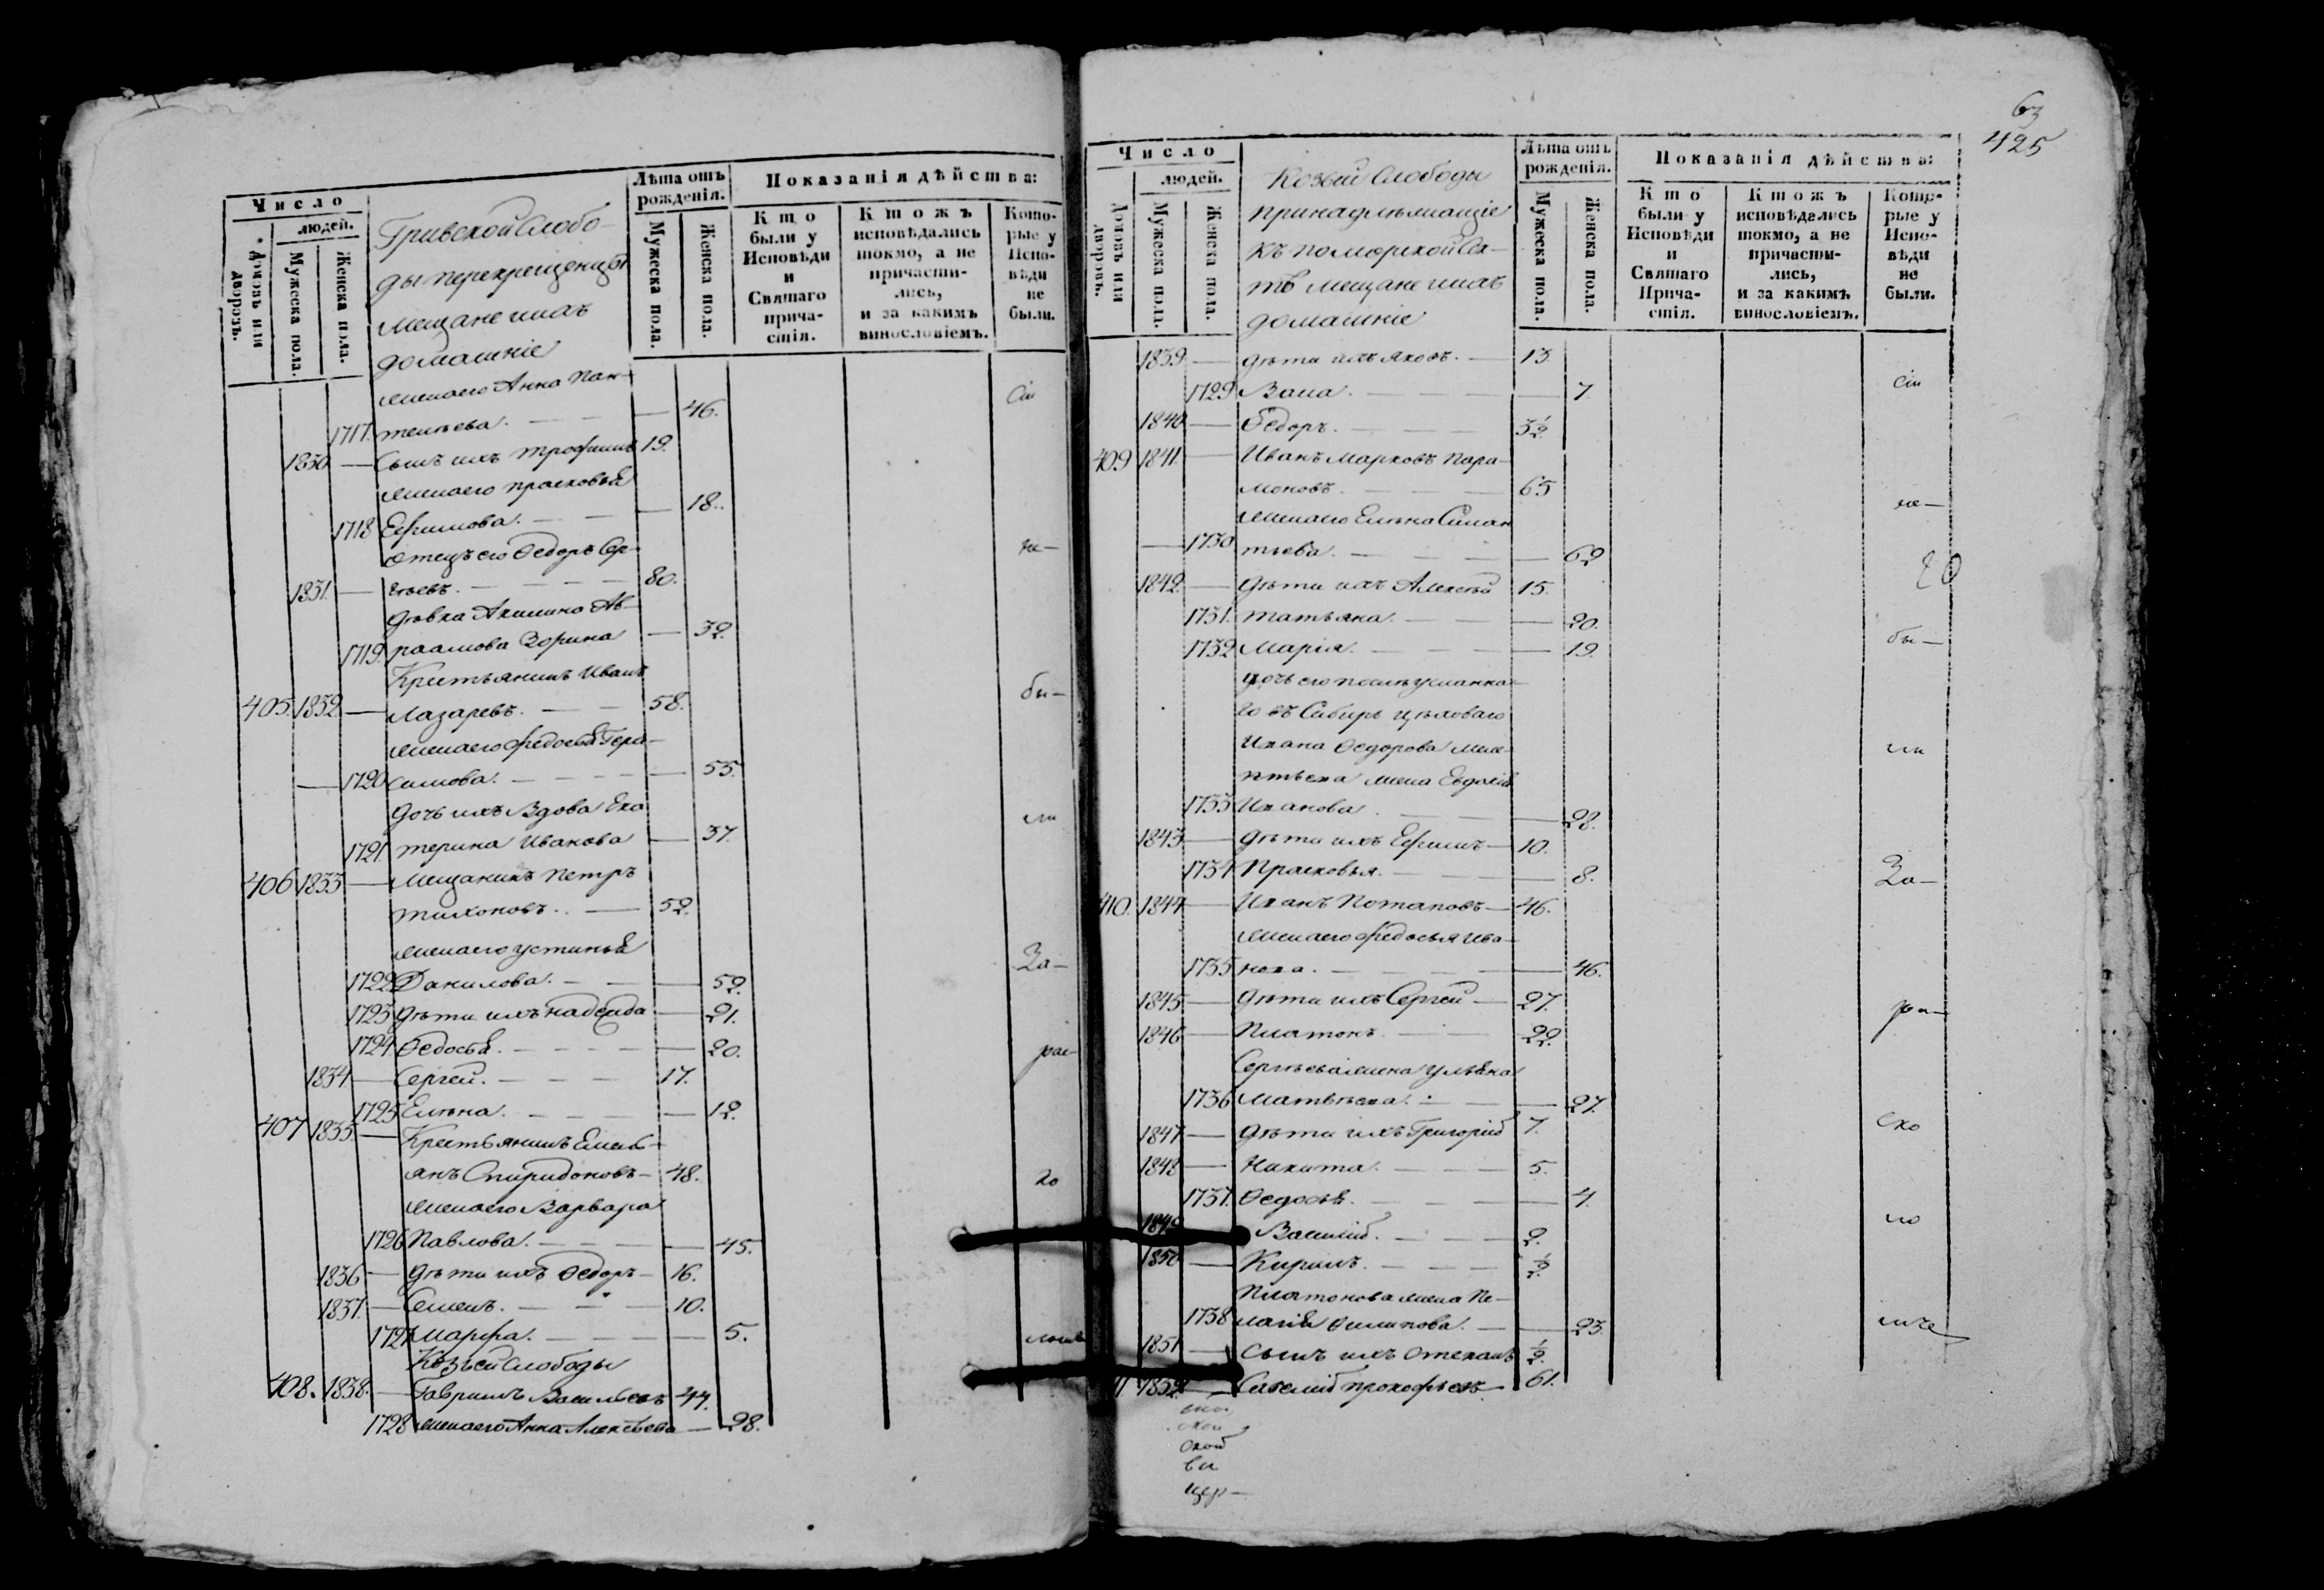 Число
людей.
Домовъ или дворовъ.
Мужеска пола.
Женска пола.
Гривской Слобо-
ды перекрещенцы
мещане и ихъ
домашніе
Лѣта отъ рожденія.
Мужеска пола.
Женска пола.
Показанія дѣйства:
Кто были у Исповѣди и Святаго прича-стія.
Ктожъ исповѣдались токмо, а не причасти-лись, и за какимъ винословіемъ.
Кото-рые у Испо-вѣди не были.
жена его Анна Пан- Сіи
1717. телѣева. — 46.
1830 — Сынъ ихъ Трофимъ 19.
жена его Прасковья
1718 Ефимова. — 18.
Отецъ его Ѳедоръ Сер- не-
1831. — гѣевъ. — 80.
дѣвка Акилина Ав-
1719. раамова Зорина — 32
Крестьянинъ Иванъ
405. 1832 — Лазаревъ. — 58. бы-
жена его Федосья Гера-
— 1720 симова. — 55.
дочь ихъ вдова Ека ли
1721 терина Иванова — 37.
406 1833 — Мещанинъ Петръ
Тихоновъ. — 52.
жена его Устинья
1722 Данилова. — 52. За-
1723 дѣти ихъ Надежда — 21.
1724 Ѳедосья. — 20. рас-
1834 — Сергей. — 17.
1725 Елена. — 12.
407 1835 — Крестьянинъ Емель-
янъ Спиридоновъ — 48. ко
жена его Варвара
1726 Павлова. — 45.
1836 — дѣти ихъ Ѳедоръ — 16.
1837. — Семенъ. — 10.
1727 Марфа. — 5.
Козьей Слободы
408. 1838. — Гавриилъ Васильевъ 44.
1728 жена его Анна Алексѣева — 28.
63
425
Число
людей.
Домовъ или дворовъ.
Мужеска пола.
Женска пола.
Козьей Слободы
принадлежащіе
къ поморской се-
ктѣ мещане и ихъ
домашніе
Лѣта отъ рожденія.
Мужеска пола.
Женска пола.
Показанія дѣйства:
Кто были у Исповѣди и Святаго Прича-стія.
Ктожъ исповѣдались токмо, а не причасти-лись, и за какимъ винословіемъ.
Кото-рые у Испо-вѣди не были.
1839 — дѣти ихъ Яковъ. — 13.
1729 Васа. — 7. Сіи
1840 — Ѳедоръ. — 3½
409 1841. — Иванъ Марковъ Пара-
моновъ. — 65
жена его Елена Силан не-
— 1730 тьева. — 62
1842. — дѣти ихъ Алексѣй 15.
1731. Татьяна. — 20.
1732 Марія. — 19. бы-
дочь его
го въ Сибирь
Ивана Ѳедорова ли
жена Евдокія
1733 Иванова — 28.
1843 — дѣти ихъ Ефимъ — 10.
1734 Прасковья. — 8. За-
410. 1844 — Иванъ Потаповъ — 46.
жена его Федосья Ива-
1735 нова. — 46.
1845 — дѣти ихъ Сергей — 27. ра-
1846 — Платонъ. — 22.
Сергѣева жена Ульяна
1736 Матвѣева. — 27.
1847 — дѣти ихъ Григорій 7. ско
1848 — Никита. — 5.
1737. Ѳедосья. — 4.
1849 Василій. — 2. ло
1850 — Кирилъ. — ½
Платонова жена Пе-
1738 лагія Филипова. — 23.
1851 — Сынъ ихъ Степанъ ½.
1852. — Савелій Прокофьевъ 61.
ской
ви
цер-